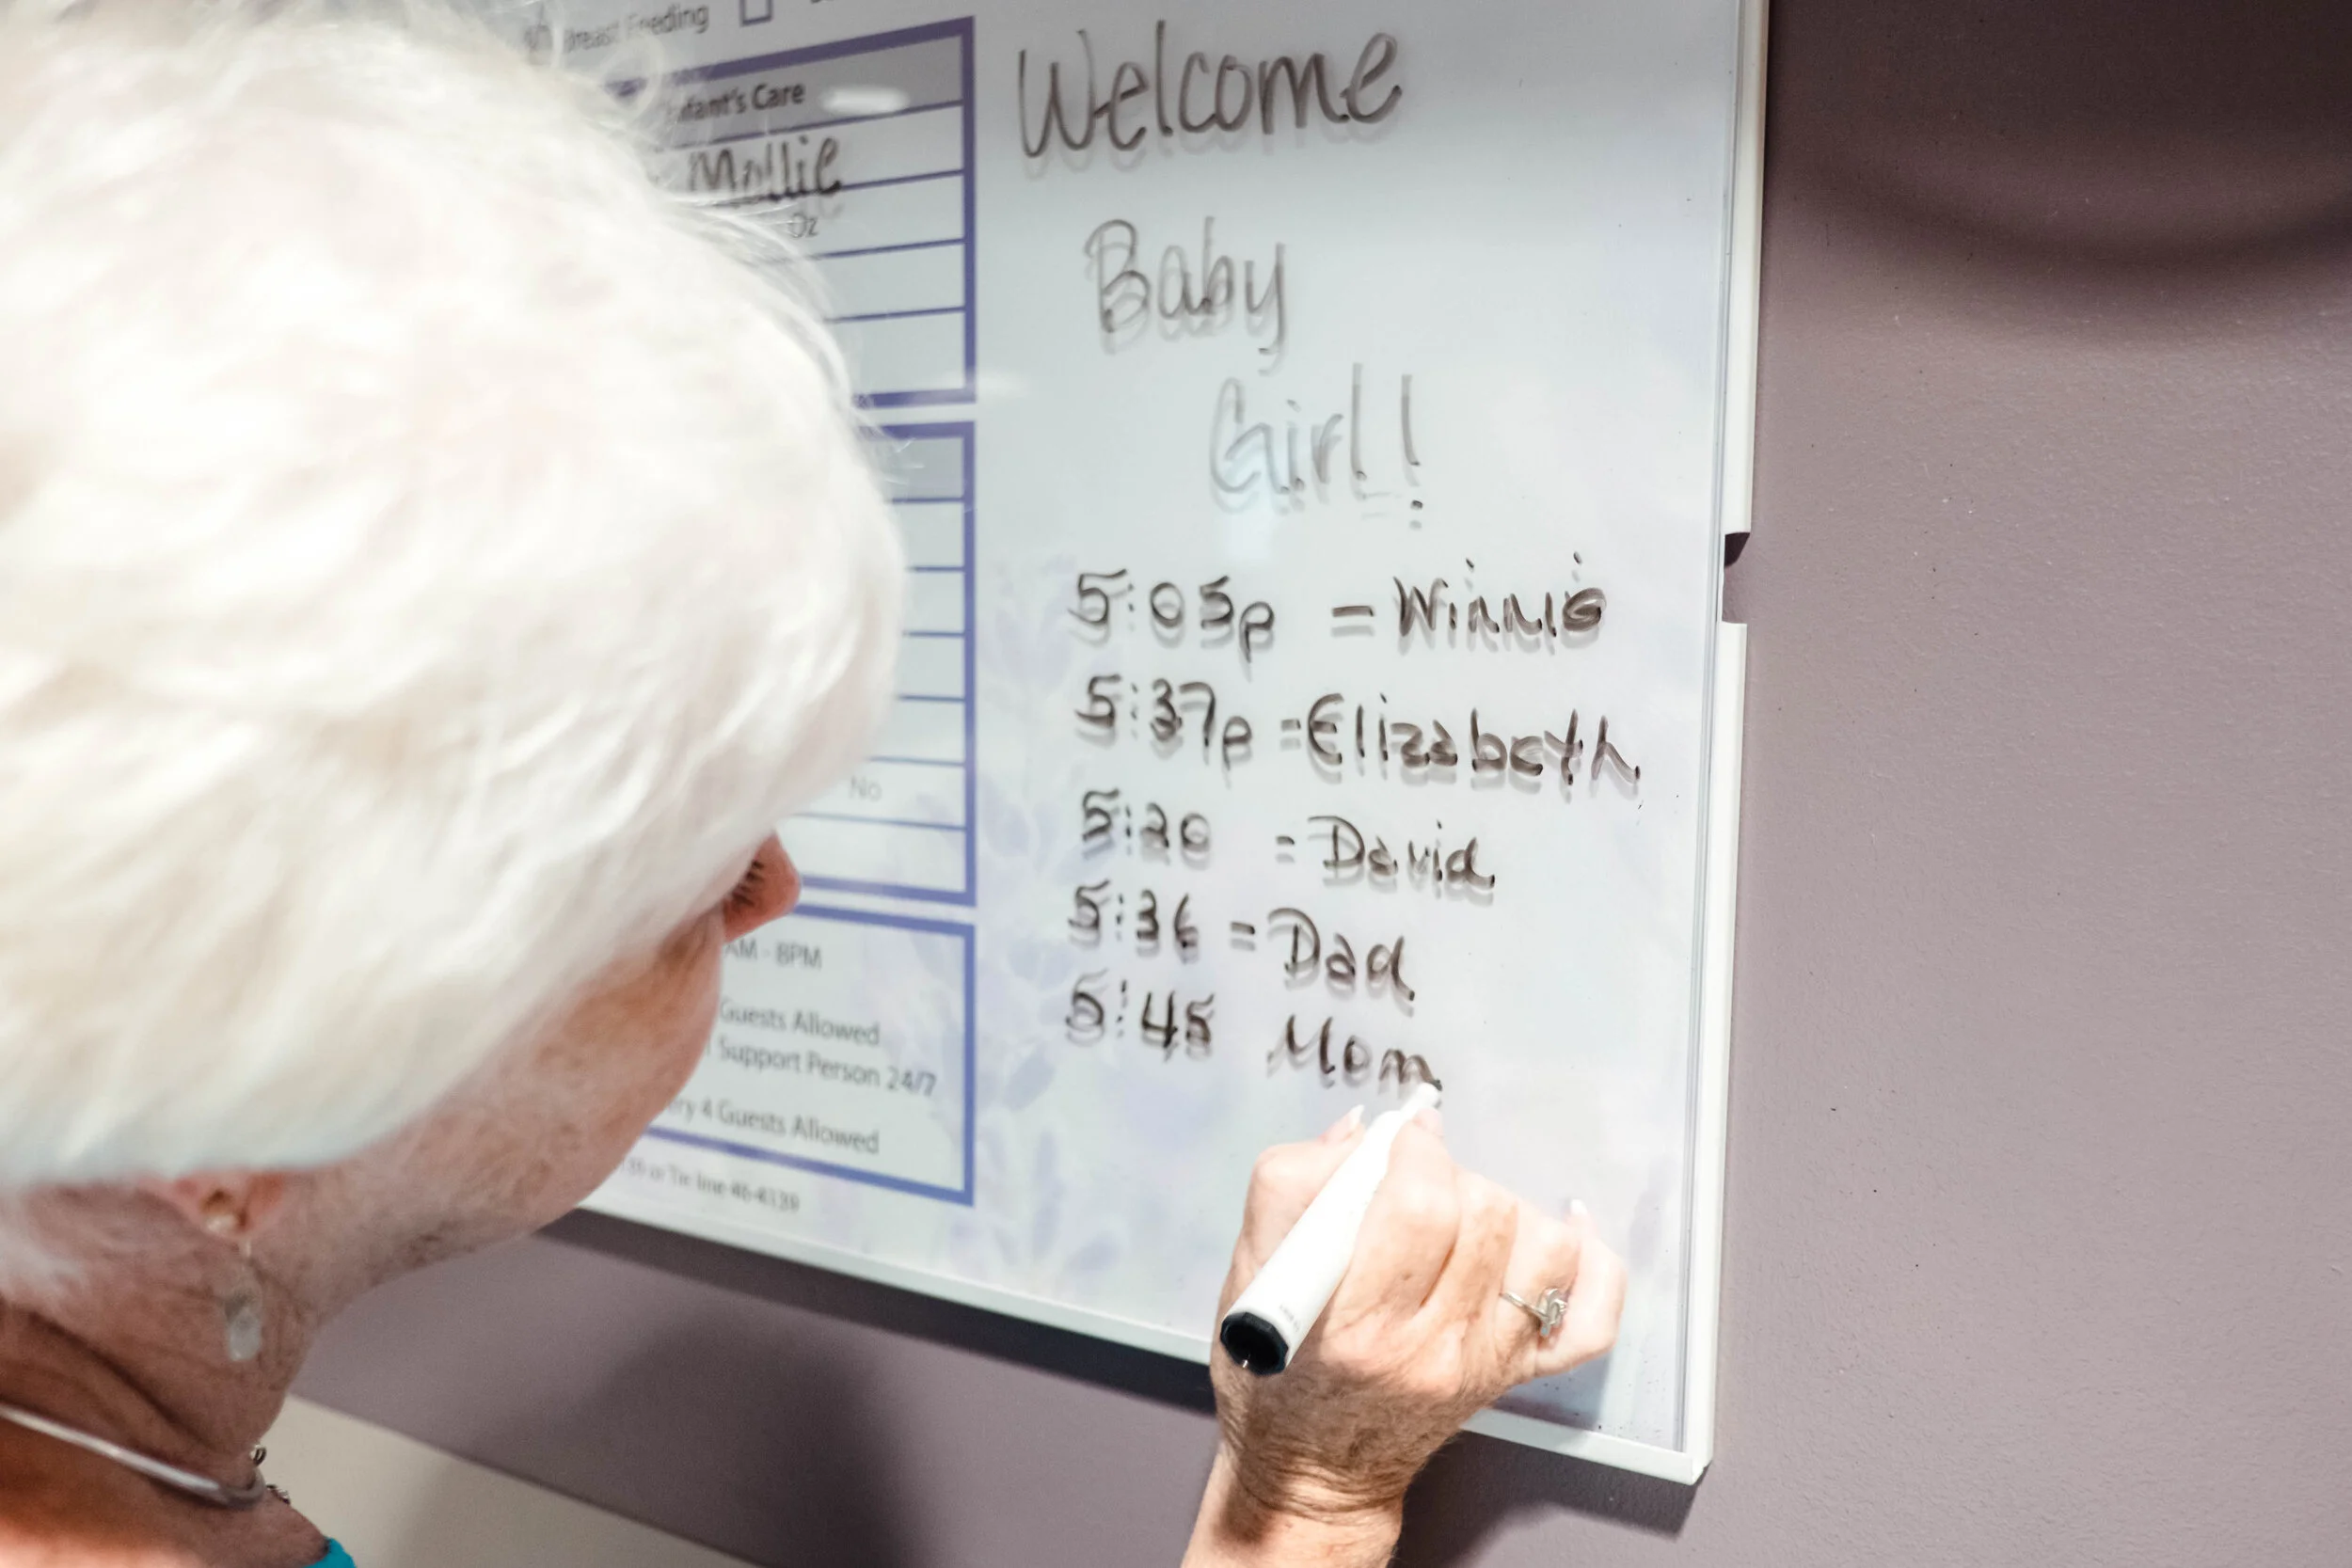 Breast Feeding
Infant's Care
Mollie
Oz
No
AM - 8PM
Guests Allowed
Support Person 24/7
4 Guests Allowed
or Tie line 46-4139
Welcome
Baby
Girl!
5:05p = Winnie
5:37p = Elizabeth
5:20 = David
5:36 = Dad
5:45 Mom